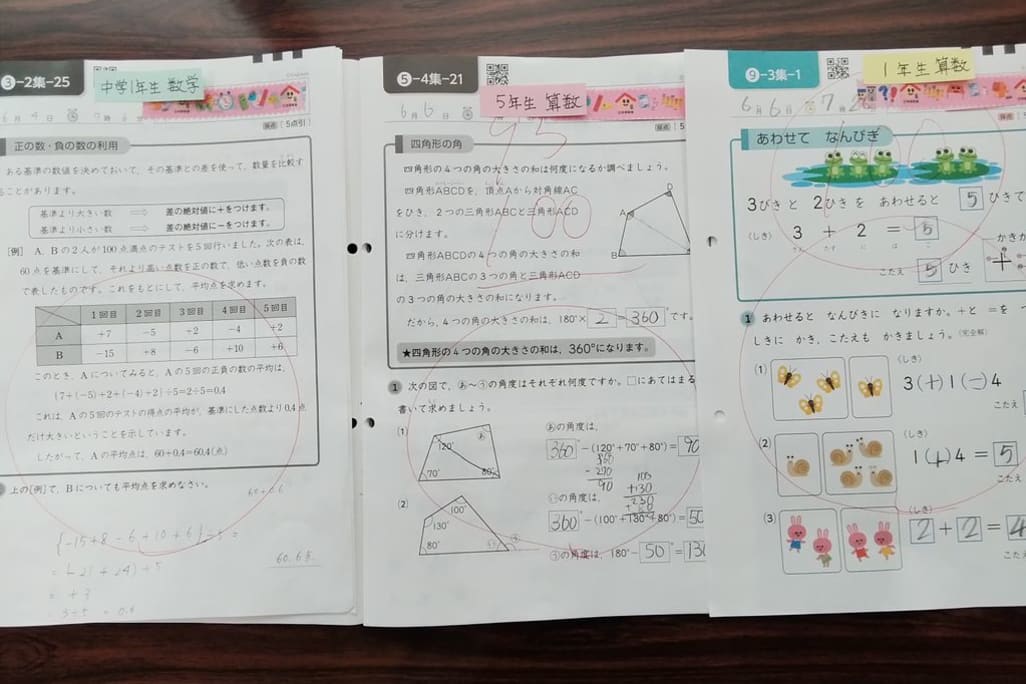 ③-2集-25
中学1年生 数学
6月4日
正の数・負の数の利用
ある基準の数値を決めておいて、その基準との差を使って、数量を比較す
ることがあります。
基準より大きい数 ⇒ 差の絶対値に+をつけます。
基準より小さい数 ⇒ 差の絶対値に−をつけます。
[例] A、Bの2人が100点満点のテストを5回行いました。次の表は、
60点を基準にして、それより高い点数を正の数で、低い点数を負の数
で表したものです。これをもとにして、平均点を求めます。
1回目 2回目 3回目 4回目 5回目
A +7 −5 +2 −4 +2
B −15 +8 −6 +10 +6
このとき、Aについてみると、Aの5回の正負の数の平均は、
{7+(−5)+2+(−4)+2}÷5=2÷5=0.4
これは、Aの5回のテストの得点の平均が、基準にした点数より0.4点
だけ大きいということを示しています。
したがって、Aの平均点は、60+0.4=60.4(点)
上の[例]で、Bについても平均点を求めなさい。
60+0.6
{−15+8−6+10+6}÷5=
=(−21+24)÷5
60.6点
= +3
3÷5 =
⑤-4集-21
5年生 算数
6月6日
95
100
四角形の角
四角形の4つの角の大きさの和は何度になるか調べましょう。
四角形ABCDを、頂点Aから対角線AC
をひき、2つの三角形ABCと三角形ACD
に分けます。
四角形ABCDの4つの角の大きさの和
は、三角形ABCの3つの角と三角形ACD
の3つの角の大きさの和になります。
だから、4つの角の大きさの和は、180°×2=360°です。
A
B
D
★四角形の4つの角の大きさの和は、360°になります。
1 次の図で、あ〜うの角度はそれぞれ何度ですか。□にあてはまる
書いて求めましょう。
(1)
120°
あ
70°
80°
あの角度は、
360°−(120°+70°+80°)=90
360
−270
90
(2)
100°
130°
80°
いの角度は、
360°−(100°+130°+80°)=50
うの角度は、180°−50°=130
⑨-3集-1
1年生 算数
6月6日
あわせて なんびき
3びきと 2ひきを あわせると 5ひきで
(しき) 3 + 2 = 5
さん たす に は ご
こたえ 5 ひき
かきか
1 あわせると なんびきに なりますか。+と =を
しきに かき、こたえも かきましょう。(完全解)
(1)
(しき)
3(+)1(=)4
こたえ
(2)
(しき)
1(+)4=5
こたえ
(3)
(しき)
2+2=4
こた